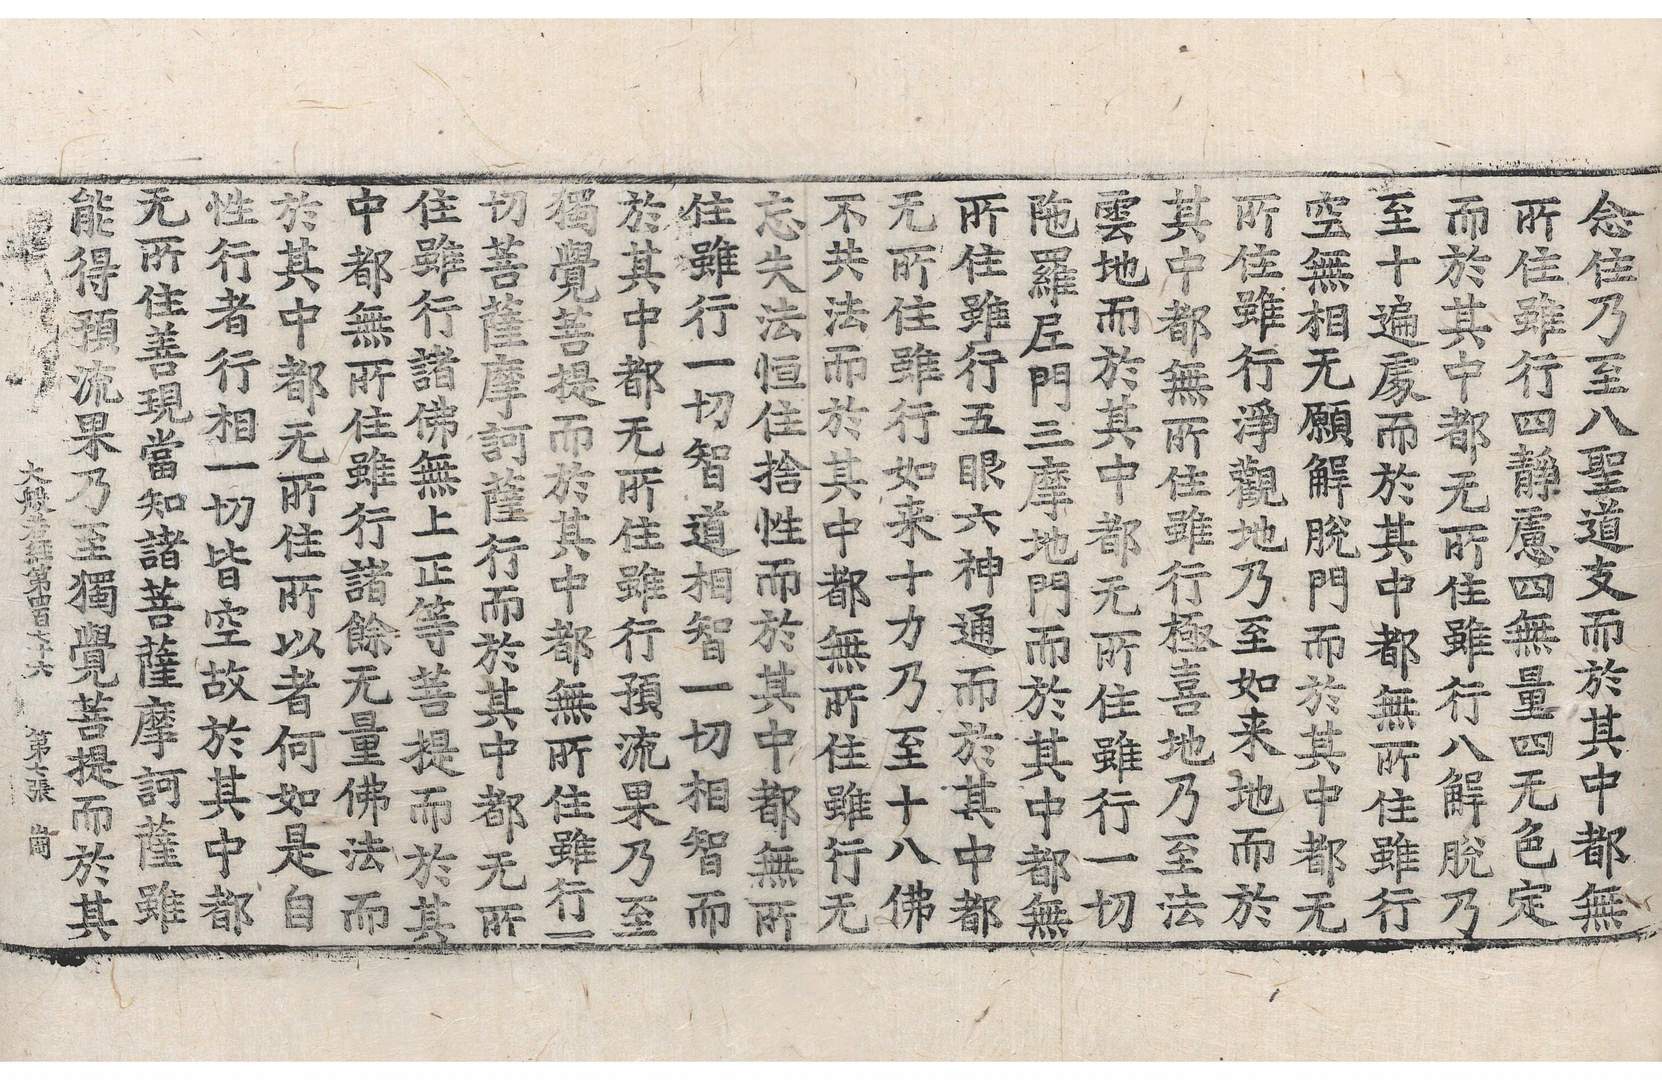 念住乃至八聖道支而於其中都無
所住雖行四靜慮四無量四无色定
而於其中都无所住雖行八解脫乃
至十遍處而於其中都無所住雖行
空無相无願解脫門而於其中都无
所住雖行淨觀地乃至如来地而於
其中都無所住雖行極喜地乃至法
雲地而於其中都无所住雖行一切
陁羅尼門三摩地門而於其中都無
所住雖行五眼六神通而於其中都
无所住雖行如来十力乃至十八佛
不共法而於其中都無所住雖行无
忘失法恒住捨性而於其中都無所
住雖行一切智道相智一切相智而
於其中都无所住雖行預流果乃至
獨覺菩提而於其中都無所住雖行一
切菩薩摩訶薩行而於其中都无所
住雖行諸佛無上正等菩提而於其
中都無所住雖行諸餘无量佛法而
於其中都无所住所以者何如是自
性行者行相一切皆空故於其中都
无所住善現當知諸菩薩摩訶薩雖
能得預流果乃至獨覺菩提而於其
大般若經第四百六十六 第七張 崗